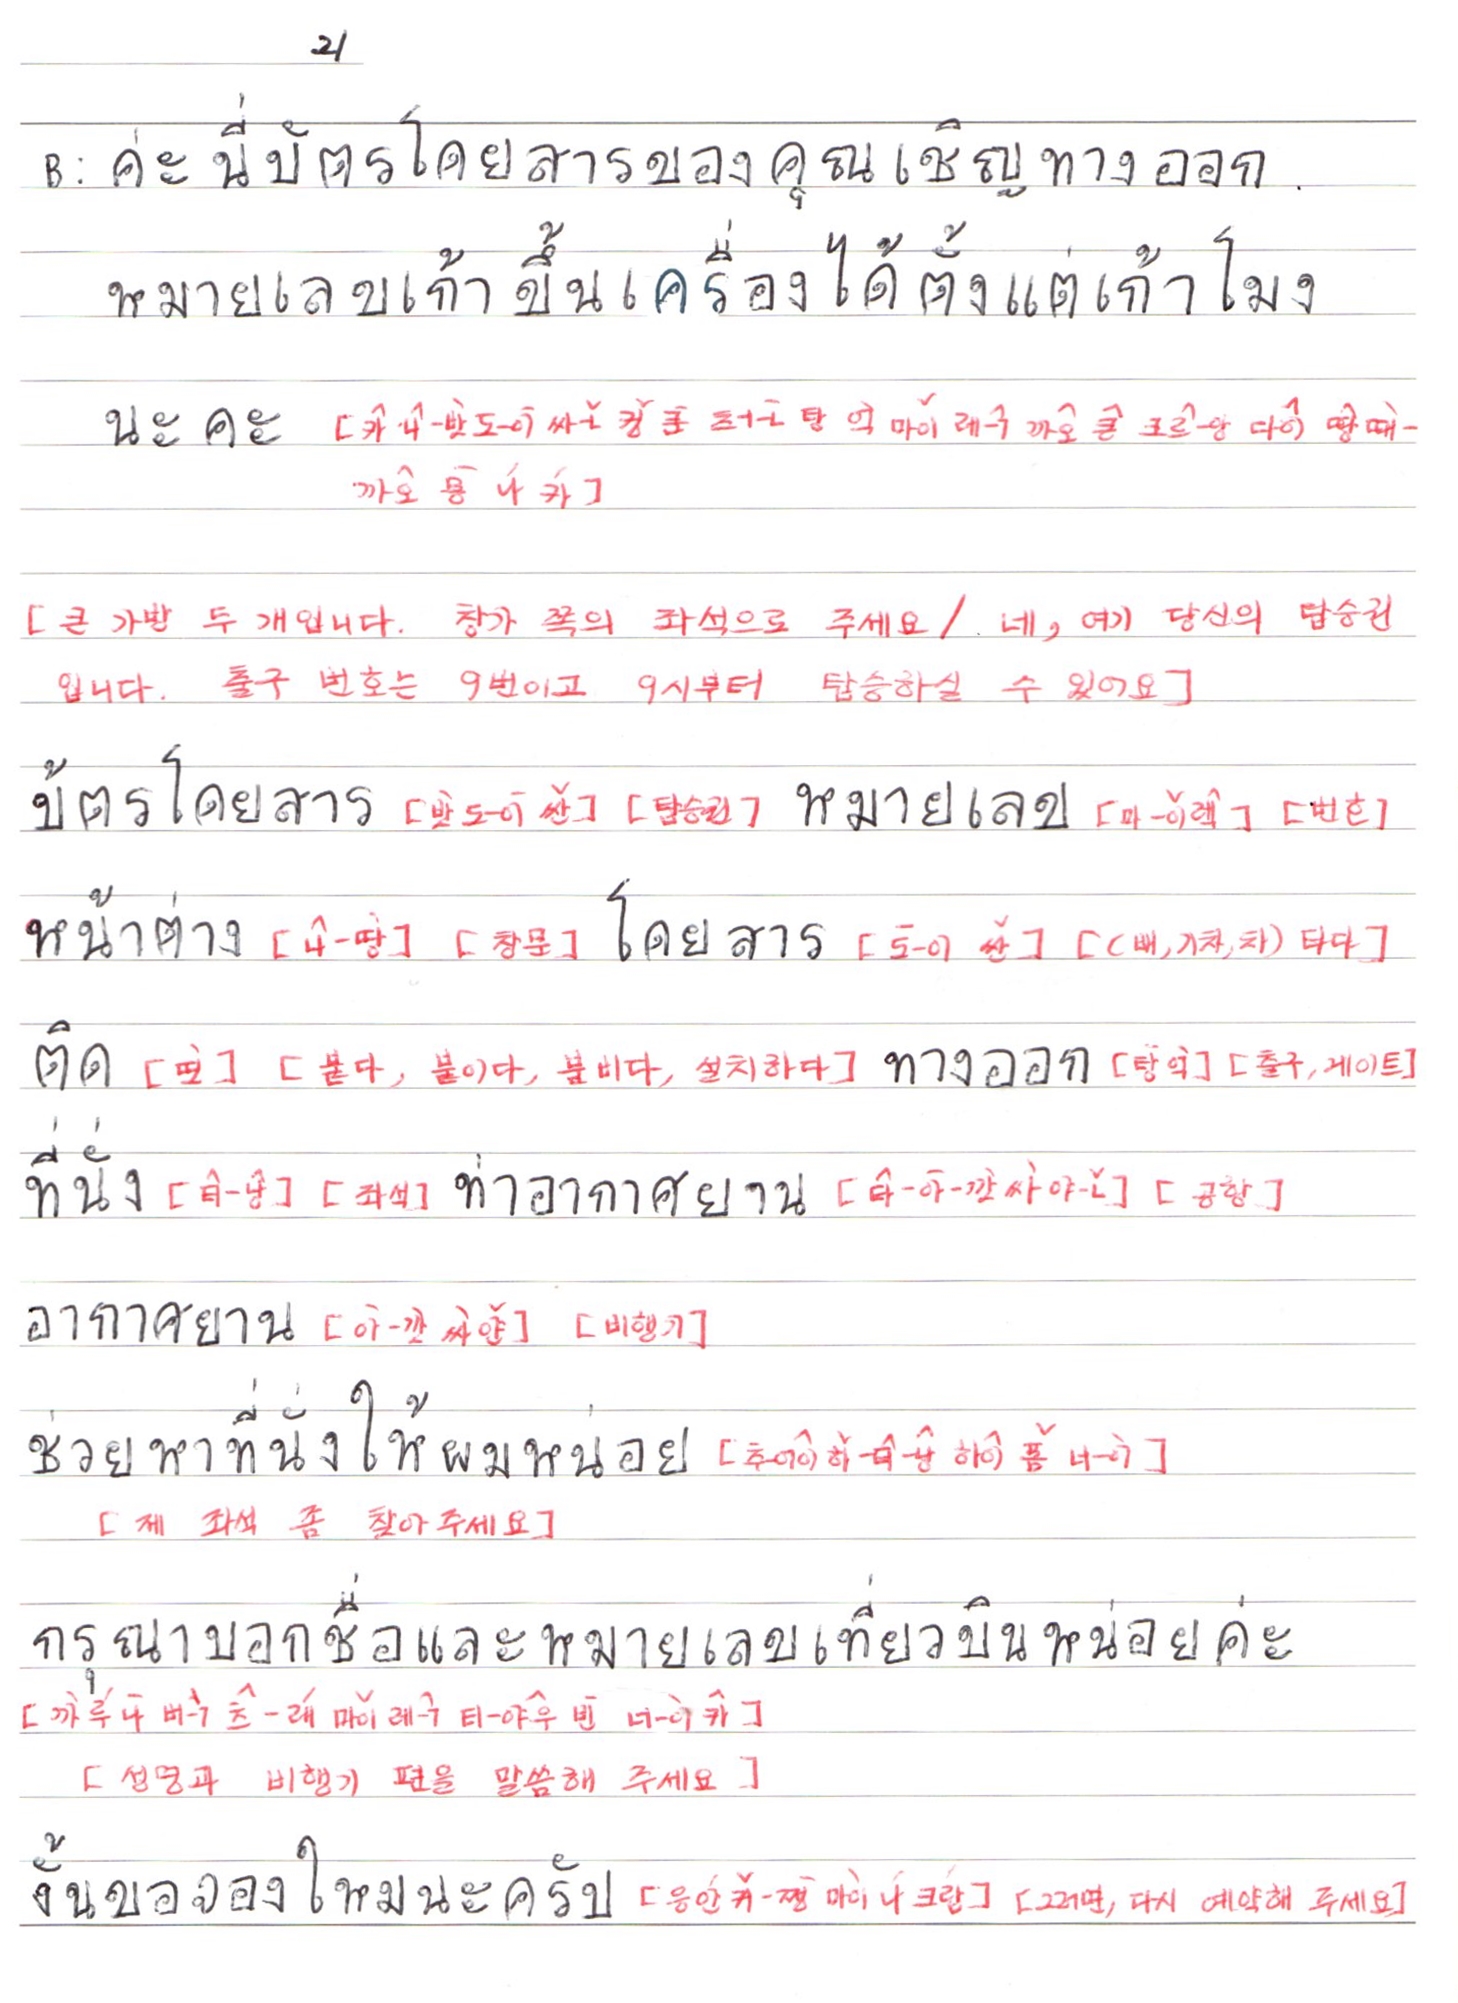 21
B: ค่ะ นี่บัตรโดยสารของคุณเชิญทางออก.
หมายเลขเก้า ขึ้นเครื่องได้ตั้งแต่เก้าโมง
นะคะ [카 니-밧도-이 싸-ㄴ 컹 쿤 츠ㅓ-ㄴ 탕 억 마이 레-ㄱ 까오 큰 크르-앙 다이 땅때-
까오 몽 나 카]
[큰 가방 두 개입니다. 창가 쪽의 좌석으로 주세요/. 네, 여기 당신의 탑승권
입니다. 출구 번호는 9번이고 9시부터 탑승하실 수 있어요]
บัตรโดยสาร [밧도-이 싼] [탑승권] หมายเลข [마-이렉] [번호]
หน้าต่าง [나-땅] [창문] โดยสาร [도-이 싼] [(배,기차,차) 타다]
ติด [띧] [붙다, 붙이다, 붐비다, 설치하다] ทางออก [탕억] [출구,게이트]
ที่นั่ง [티-낭] [좌석] ท่าอากาศยาน [타-아-깟싸야-ㄴ] [공항]
อากาศยาน [아-깟싸얀] [비행기]
ช่วยหาที่นั่งให้ผมหน่อย [추어이하-티-낭 하이 폼 너-이]
[제 좌석 좀 찾아주세요]
กรุณาบอกชื่อและหมายเลขเที่ยวบินหน่อยค่ะ
[까루나 버-ㄱ 츠-래 마이레-ㄱ 티-야우 빈 너-이 카]
[성명과 비행기 편을 말씀해 주세요]
งั้นขอจองใหมนะครับ [응안 커-쩡 마이 나 크랍] [그러면, 다시 예약해 주세요]